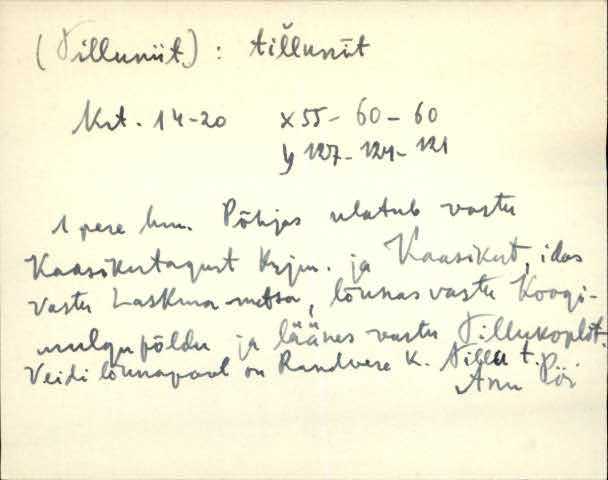 (Tilluniit) : tiľľuniit
Krt. 14-20 x 55 - 60 - 60
y 127 - 124 - 121
1 pere hm. Põhjas ulatub vastu
Kaasikutagust krjm. ja Kaasikut, idas
vastu Laskma metsa, lõunas vastu Koogi-
mulgupõldu ja läänes vastu Tillukoplit.
Veidi lõunapool on Randvere k. Tillu t.
Anu Pöi